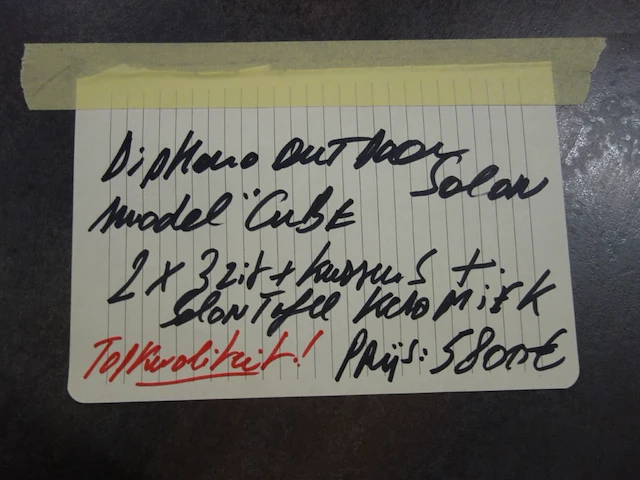 Diphano OUTDOOR
Salon
model "CUBE
2 x 3 zit + kussens +
Salontafel KERAMIEK
Topkwaliteit! PRijs: 5800€